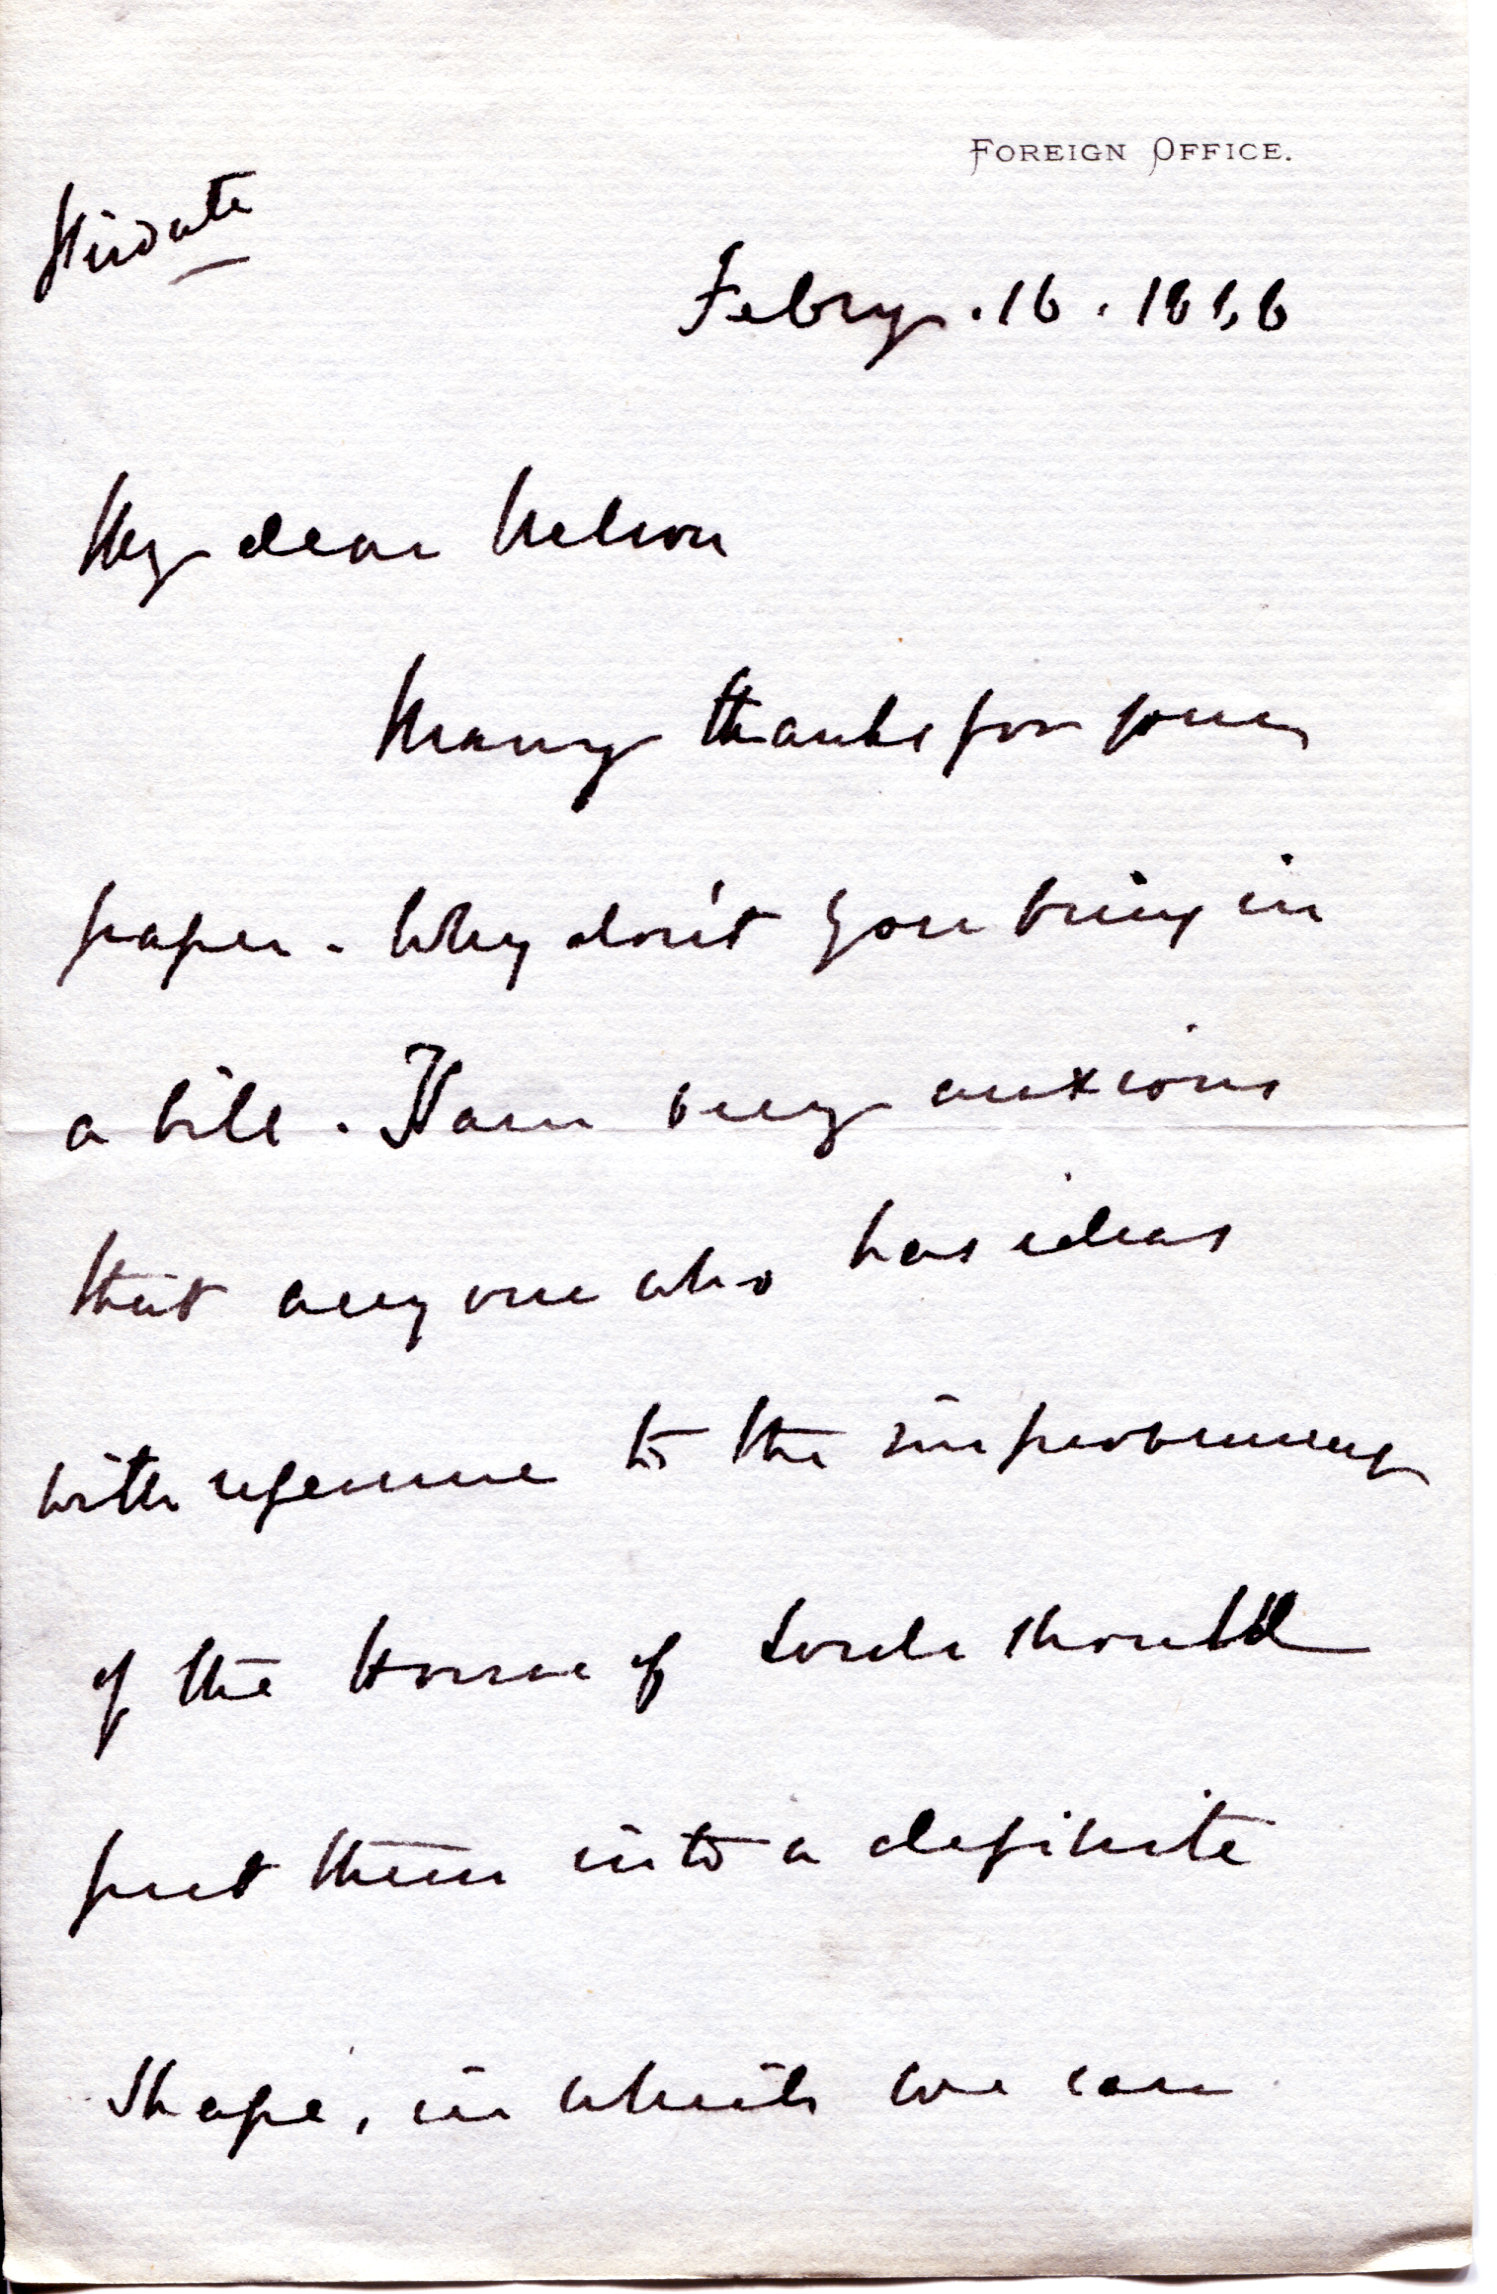 FOREIGN OFFICE.
Private
Febry. 16. 1886
My dear Nelson
Many thanks for your
paper - Why don't you bring in
a bill. I am very anxious
that any one who has ideas
with reference to the improvement
of the House of Lords should
put them into a definite
shape, in which we can